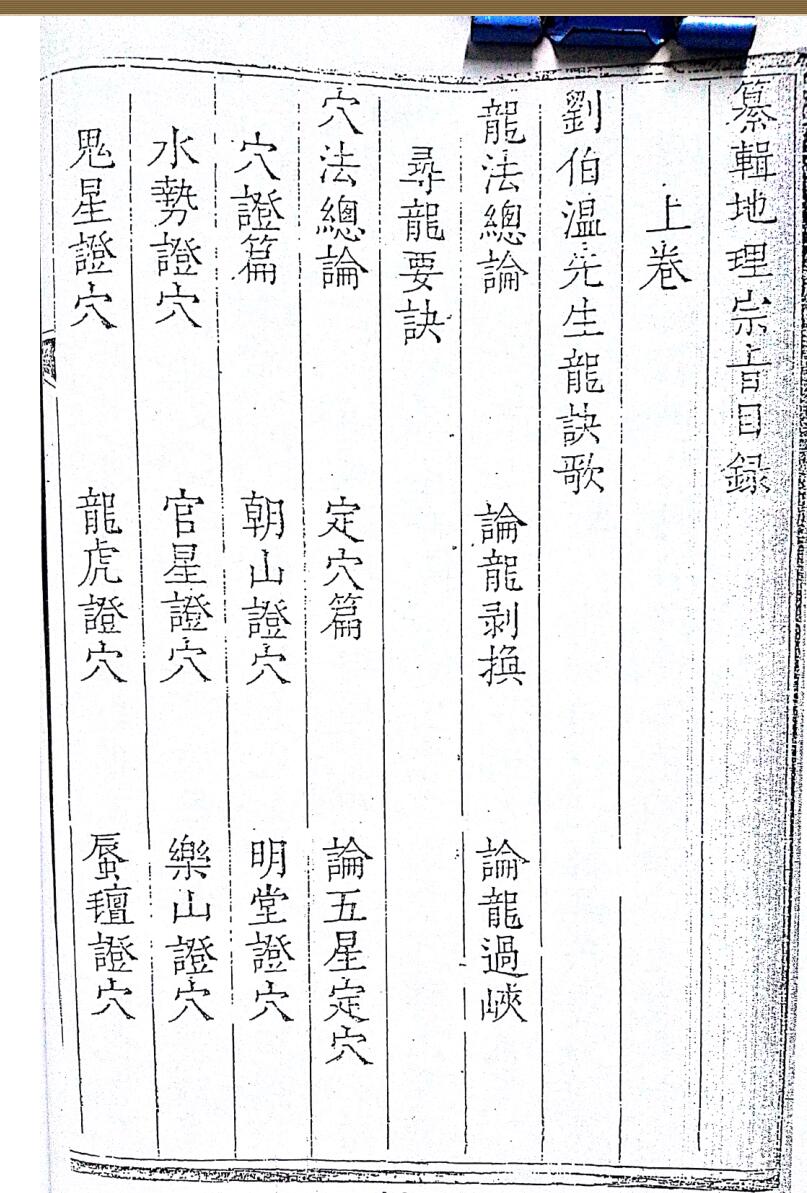 纂輯地理宗旨目録
上卷
劉伯温先生龍訣歌
龍法總論 論龍剥換 論龍過峽
尋龍要訣
穴法總論 定穴篇 論五星定穴
穴證篇 朝山證穴 明堂證穴
水勢證穴 官星證穴 樂山證穴
鬼星證穴 龍虎證穴 唇氊證穴